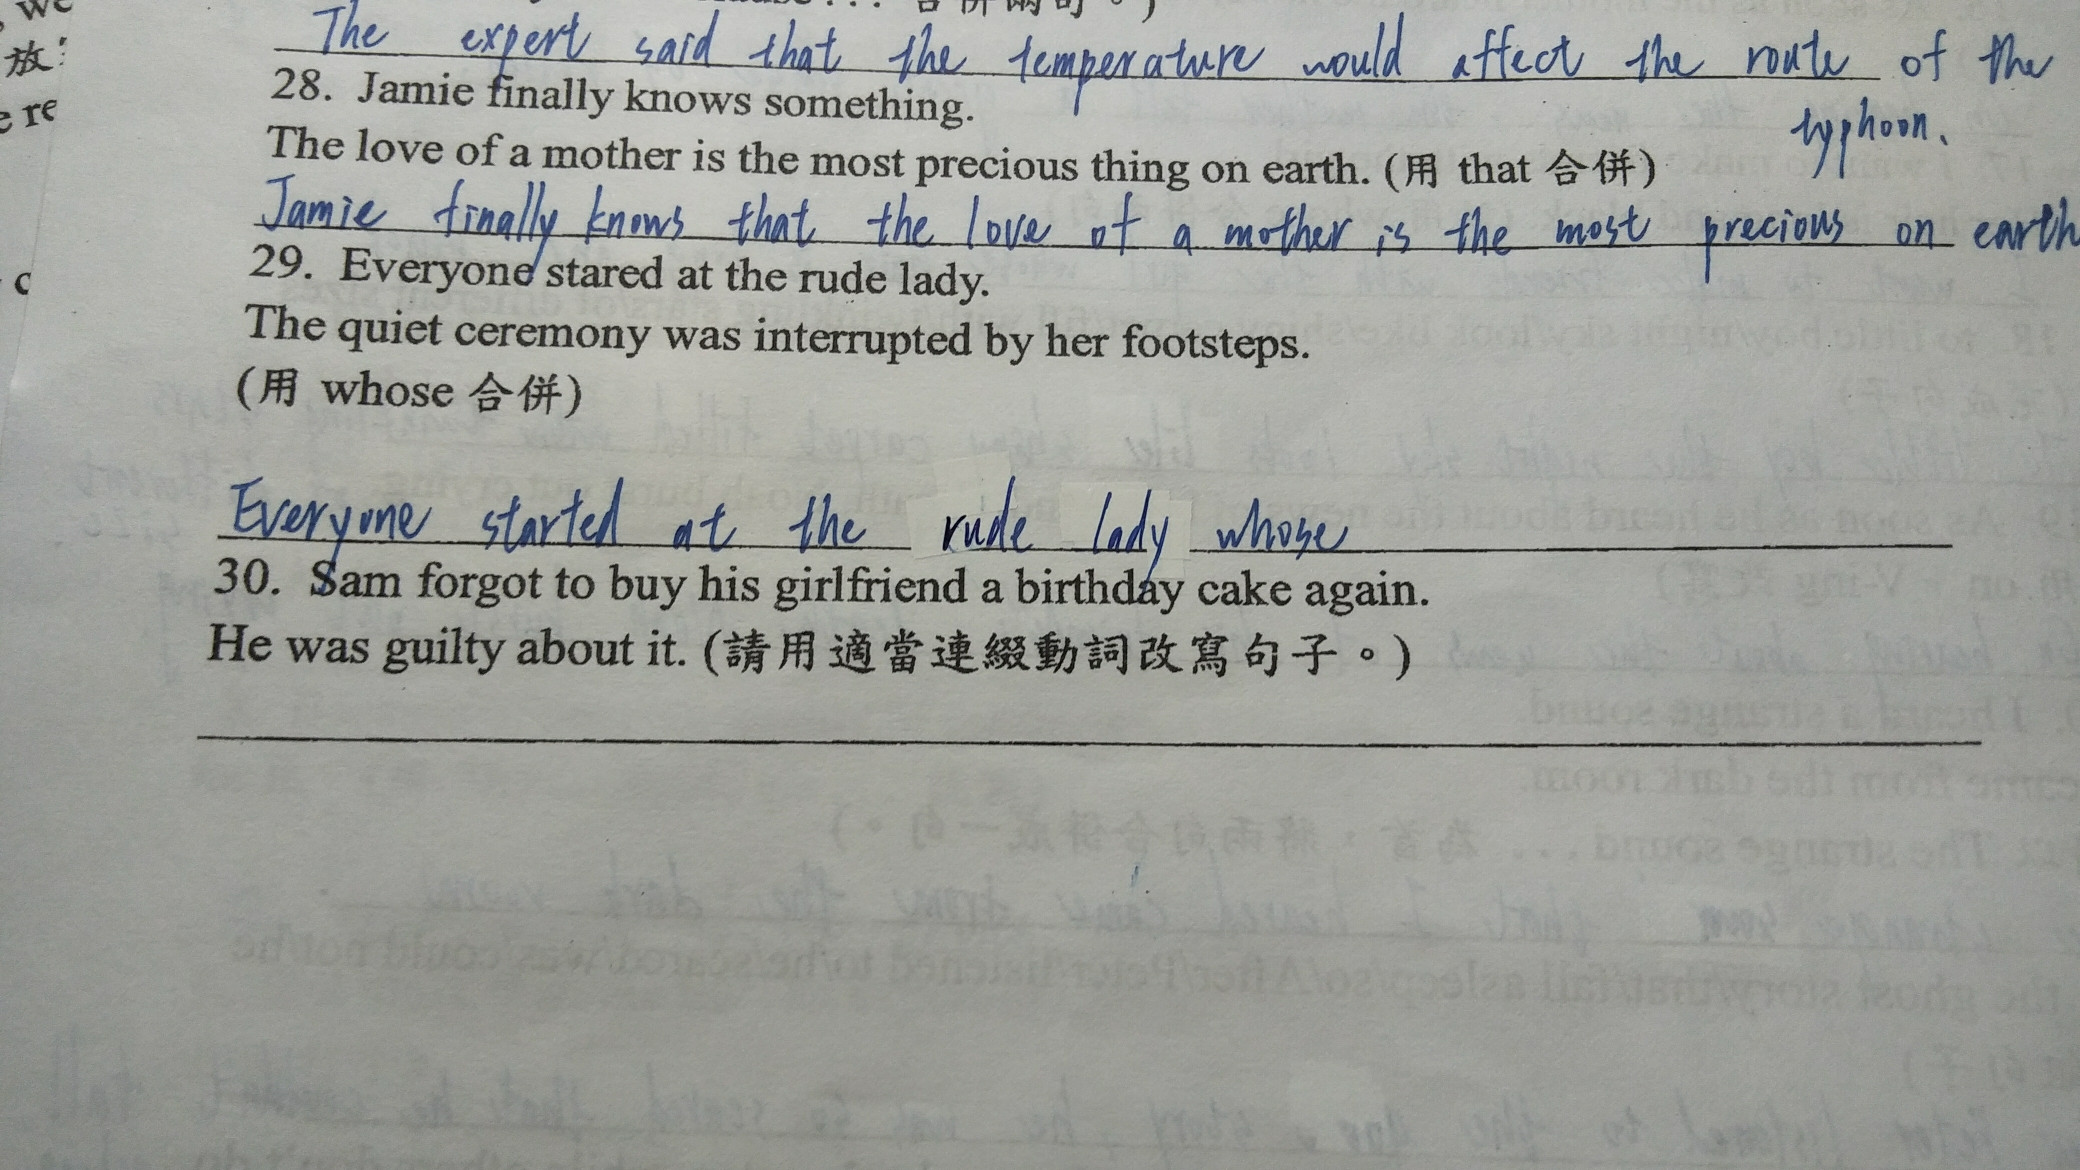 we
放:
The expert said that the temperature would affect the route of the
typhoon.
28. Jamie finally knows something.
The love of a mother is the most precious thing on earth. (用 that 合併)
Jamie finally knows that the love of a mother is the most precious on earth
29. Everyone stared at the rude lady.
The quiet ceremony was interrupted by her footsteps.
(用 whose 合併)
Everyone started at the rude lady whose
30. Sam forgot to buy his girlfriend a birthday cake again.
He was guilty about it. (請用適當連綴動詞改寫句子。)